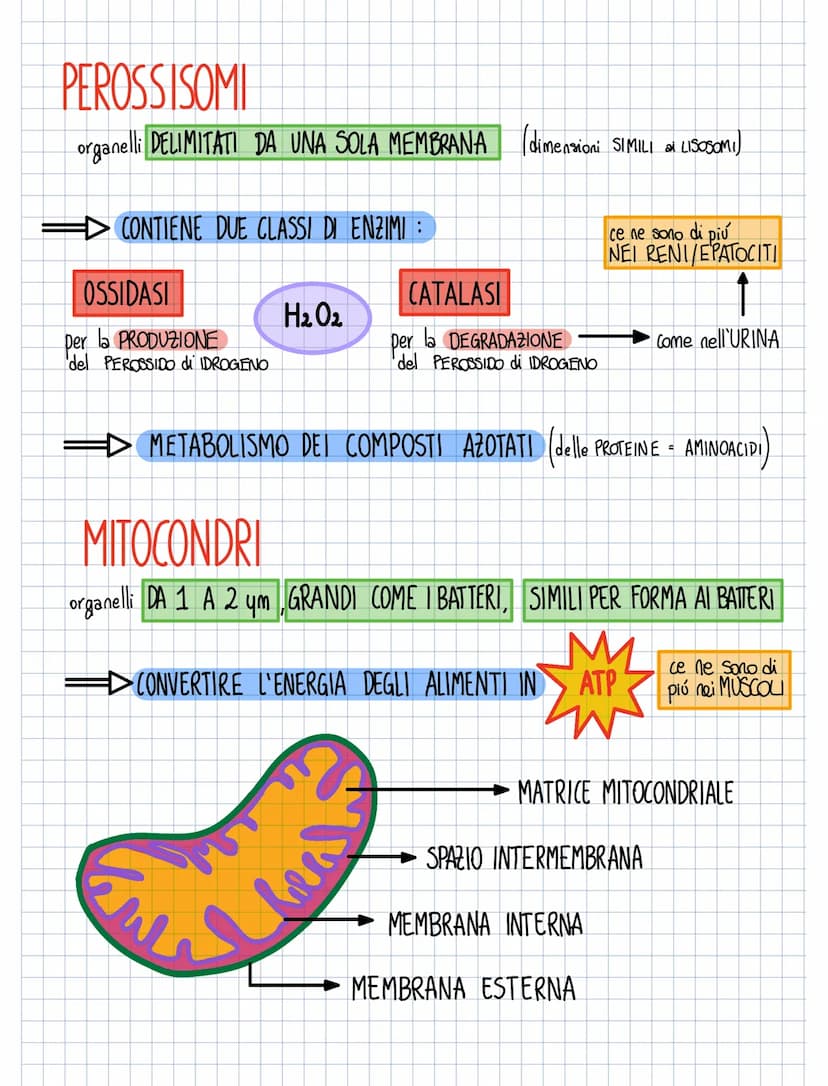 PEROSSISOMI
organelli DELIMITATI DA UNA SOLA MEMBRANA (dimensioni SIMILI ai LISOSOMI)
CONTIENE DUE CLASSI DI ENZIMI :
ce ne sono di piú
NEI RENI/EPATOCITI
OSSIDASI
H₂O₂
CATALASI
per la PRODUZIONE
del PEROSSIDO di IDROGENO
per la DEGRADAZIONE
del PEROSSIDO di IDROGENO
come nell'URINA
METABOLISMO DEI COMPOSTI AZOTATI (delle PROTEINE = AMINOACIDI)
MITOCONDRI
organelli DA 1 A 2 ym, GRANDI COME I BATTERI, SIMILI PER FORMA AI BATTERI
CONVERTIRE L'ENERGIA DEGLI ALIMENTI IN ATP
ce ne sono di
piú nei MUSCOLI
MATRICE MITOCONDRIALE
SPAZIO INTERMEMBRANA
MEMBRANA INTERNA
MEMBRANA ESTERNA